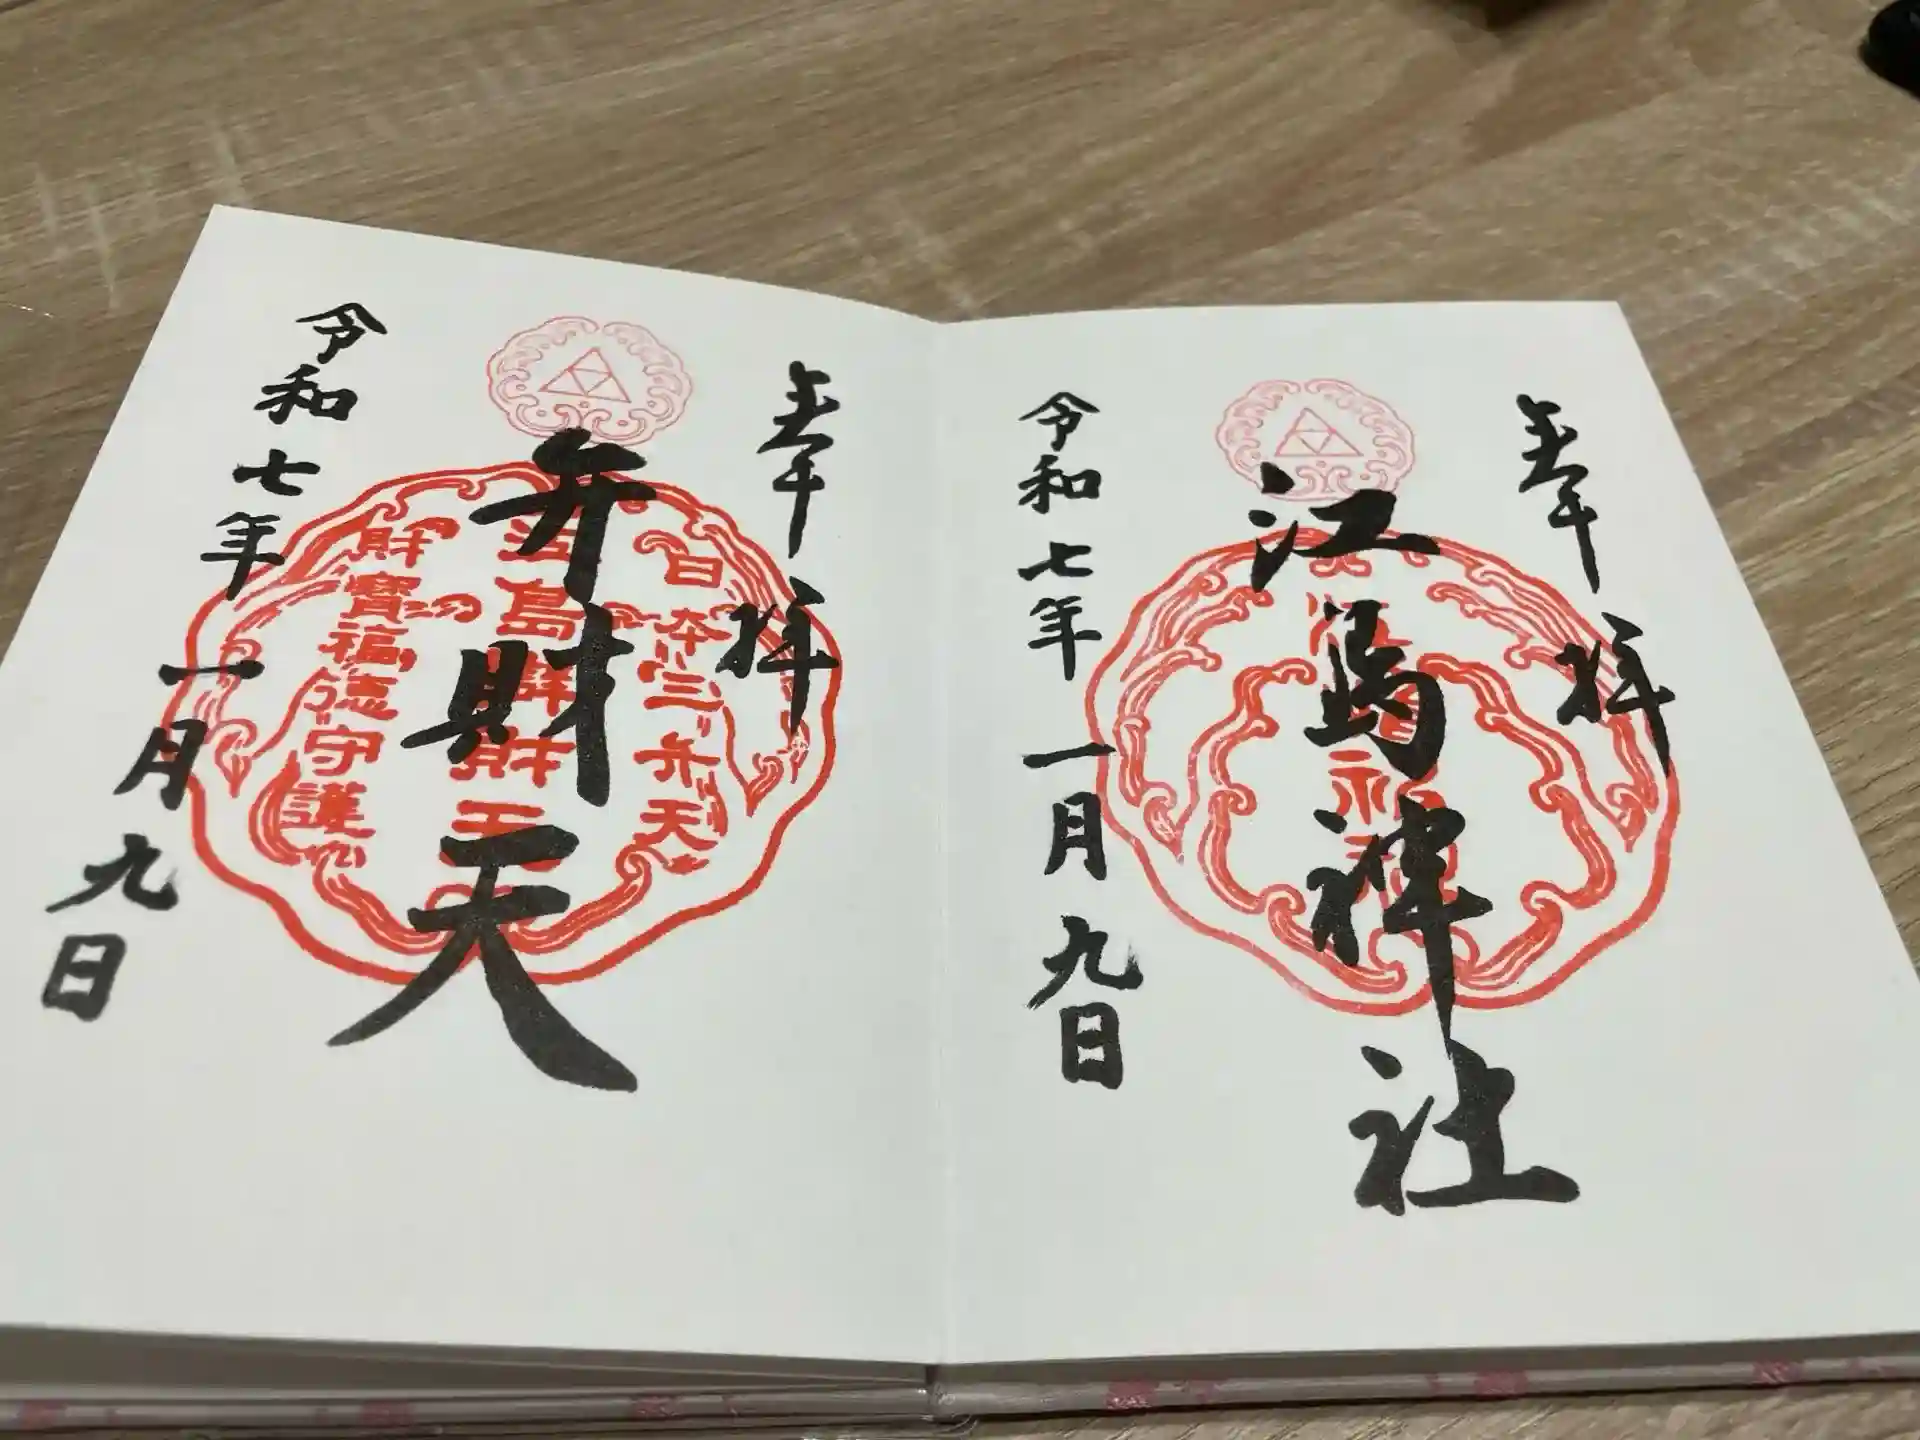 奉拝
江島神社
令和七年一月九日
奉拝
弁財天
令和七年一月九日
日本三弁天
江島辯財天
財寶福徳守護